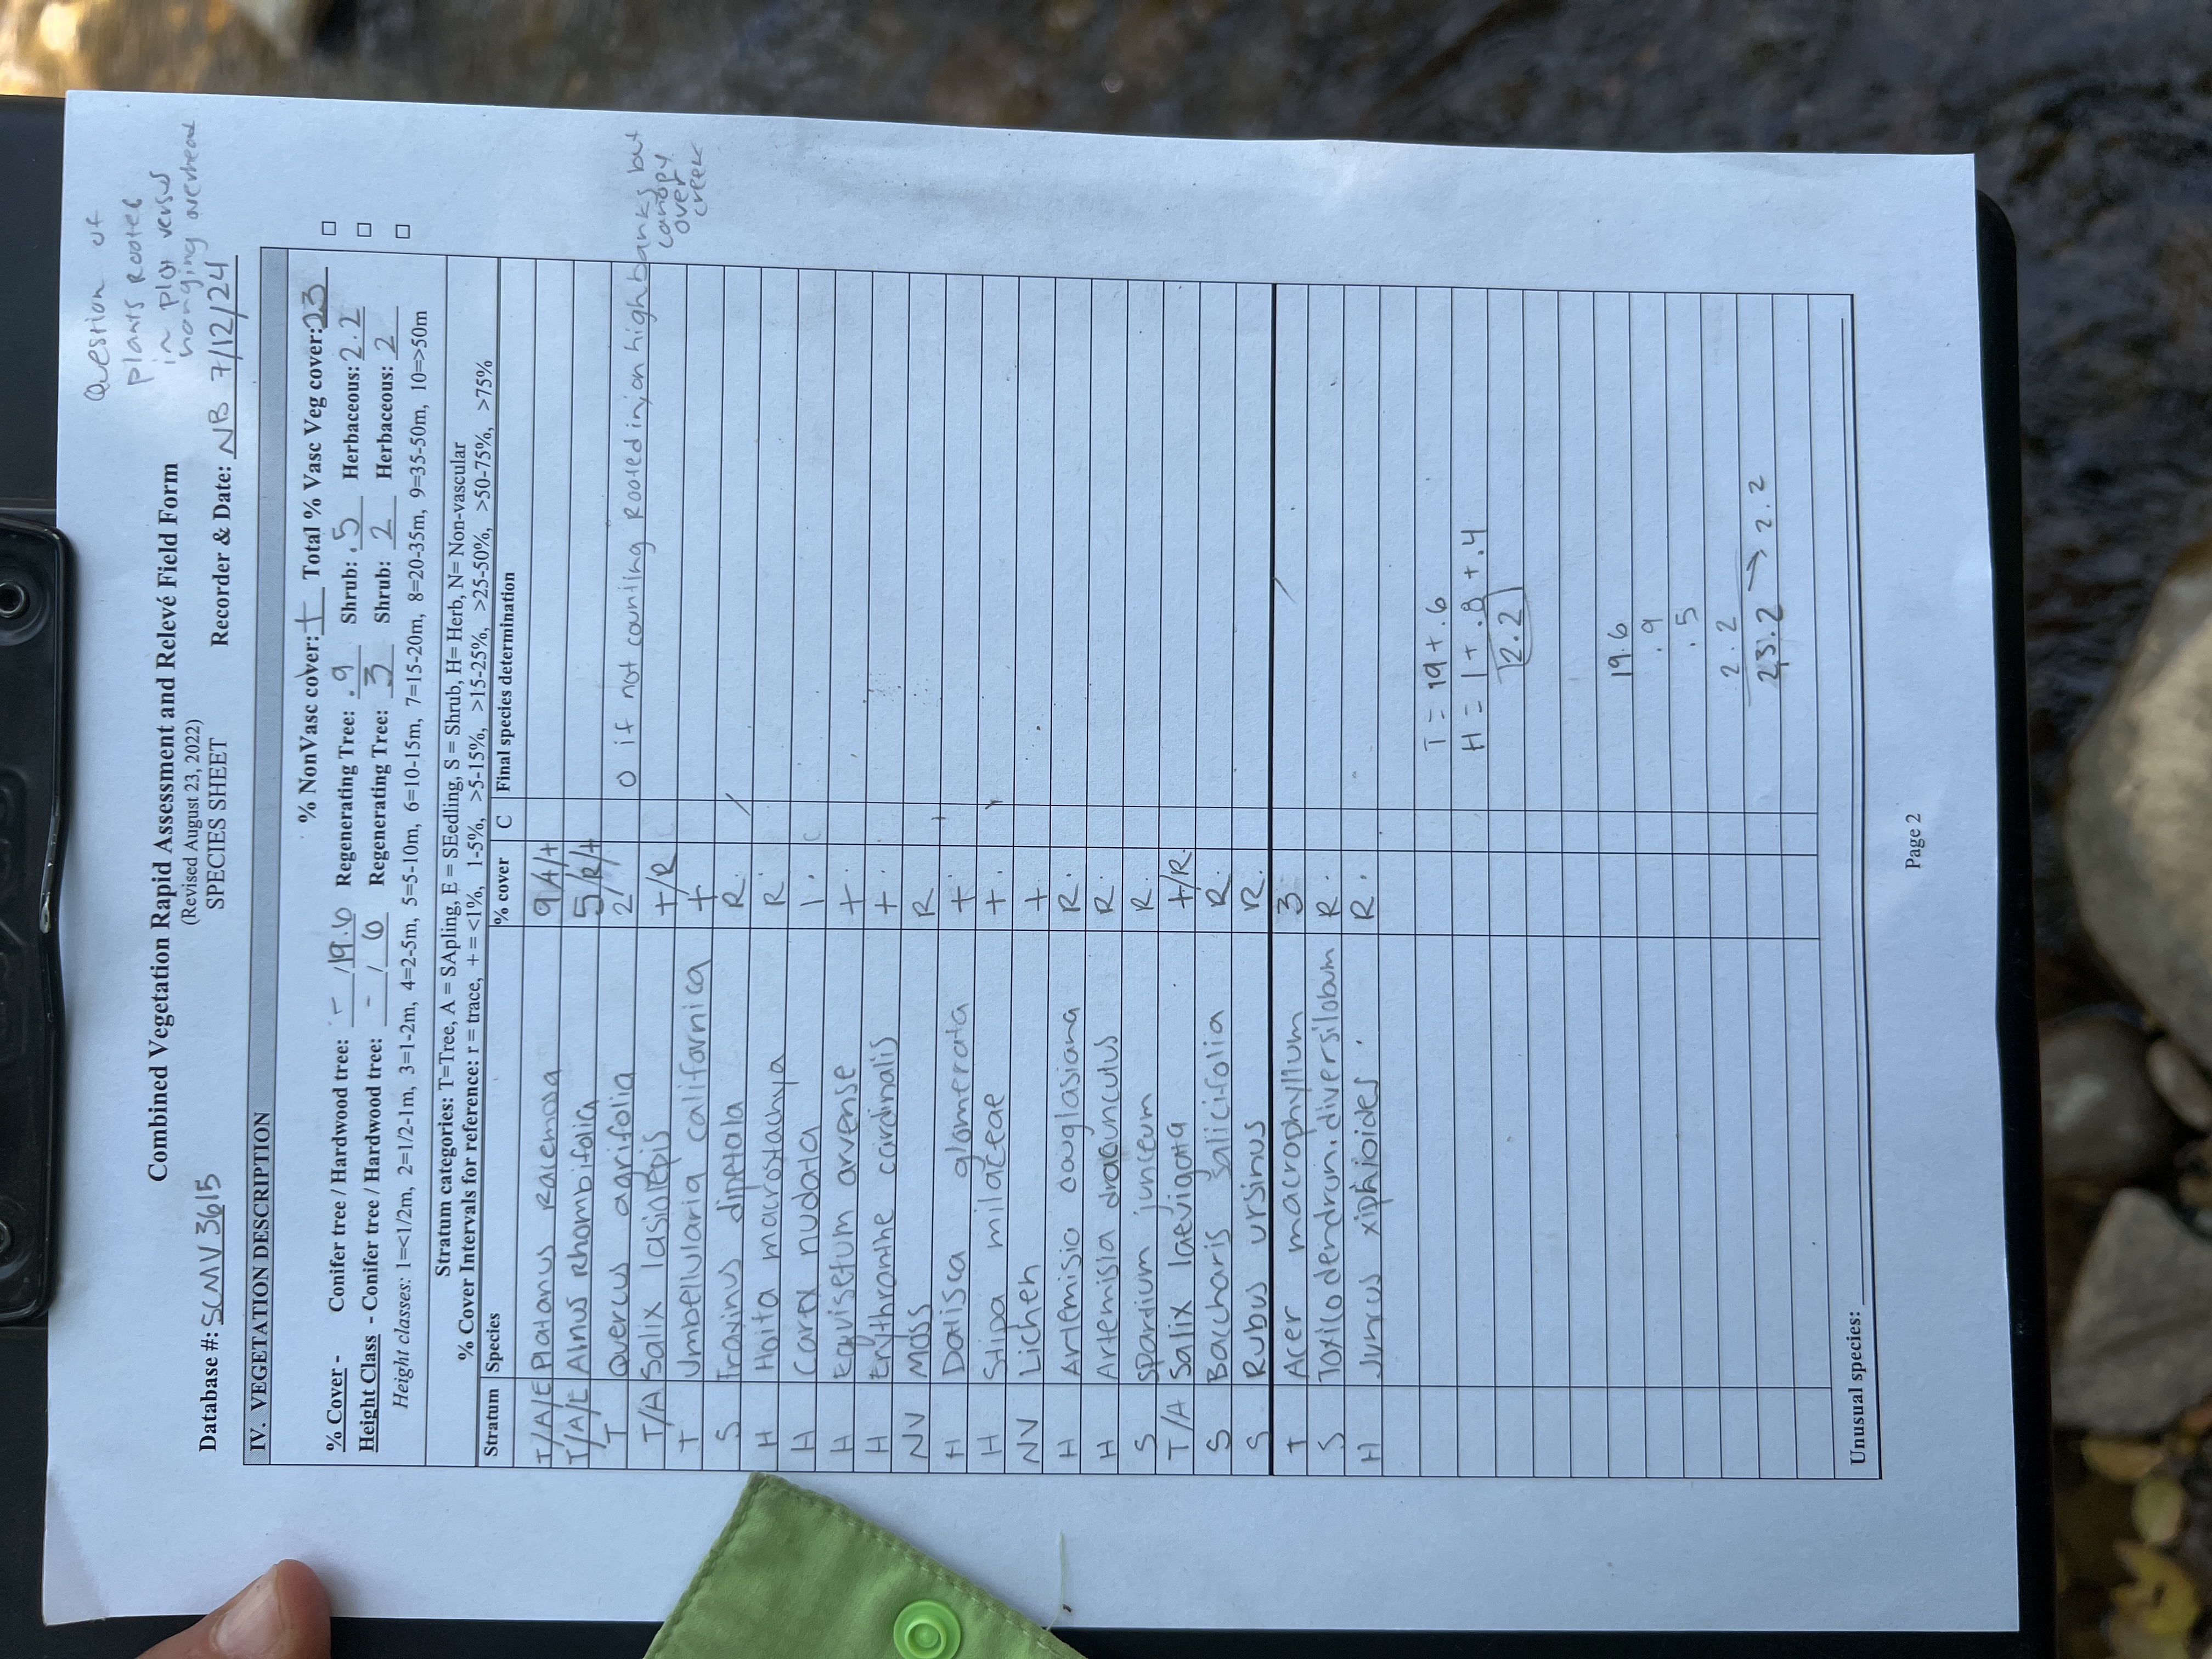 Question of
plants rooted
in plot versus
hanging overhead
Combined Vegetation Rapid Assessment and Relevé Field Form
(Revised August 23, 2022)
SPECIES SHEET
Database #: SCMV3615 Recorder & Date: NB 7/12/24
IV. VEGETATION DESCRIPTION
% NonVasc cover: + Total % Vasc Veg cover: 23
% Cover - Conifer tree / Hardwood tree: - / 19.6 Regenerating Tree: .9 Shrub: .5 Herbaceous: 2.2
Height Class - Conifer tree / Hardwood tree: - / 6 Regenerating Tree: 3 Shrub: 2 Herbaceous: 2
Height classes: 1=<1/2m, 2=1/2-1m, 3=1-2m, 4=2-5m, 5=5-10m, 6=10-15m, 7=15-20m, 8=20-35m, 9=35-50m, 10=>50m
Stratum categories: T=Tree, A = SApling, E = SEedling, S = Shrub, H= Herb, N= Non-vascular
% Cover Intervals for reference: r = trace, + = <1%, 1-5%, >5-15%, >15-25%, >25-50%, >50-75%, >75%
Stratum Species % cover C Final species determination
T/A/E Platanus racemosa 9/+/+
T/A/E Alnus rhombifolia 5/R/+
T Quercus agrifolia 2 0 if not counting rooted in, on high banks but canopy over creek
T/A Salix lasiolepis +/R
T Umbellularia californica +
S Fraxinus dipetala R
H Hoita macrostachya R
H Carex nudata 1
H Equisetum arvense +
H Erythranthe cardinalis +
NV Moss R
H Datisca glomerata +
H Stipa milaceae +
NV Lichen +
H Artemisia douglasiana R
H Artemisia dracunculus R
S Spartium junceum R
T/A Salix laevigata +/R
S Baccharis salicifolia R
S Rubus ursinus R
T Acer macrophyllum 3
S Toxicodendrum diversilobum R
H Juncus xiphioides R
T = 19 + .6
H = 1 + .8 + .4
2.2
19.6
.9
.5
2.2
23.2 → 2.2
Unusual species:
Page 2